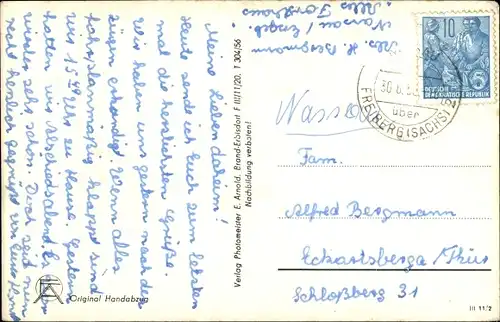 Meine Lieben daheim!
Heute sende ich Euch zum letzten
mal die herzlichsten Grüße.
Wir haben uns gestern nach den
Zügen erkundigt. Wenn alles
fahrplanmäßig klappt sind
wir 15 Uhr zu Hause. Gestern
hatten wir Abschiedsabend. Es
wieder sehr schön. Doch seit nun
recht herzlich gegrüßt von
Verlag Photomeister E. Arnold, Brand-Erbisdorf F II/11/20. T 304/56
Nachbildung verboten!
Original Handabzug
Abs. H. Bergmann
Nassau / Erzgeb.
Altes Forsthaus
10
DEUTSCHE
DEMOKRATISCHE REPUBLIK
30.6.
über
FREIBERG (SACHS)
Nassau
Fam.
Alfred Bergmann
Eckartsberga /Thür
Schloßberg 31
III 11/2